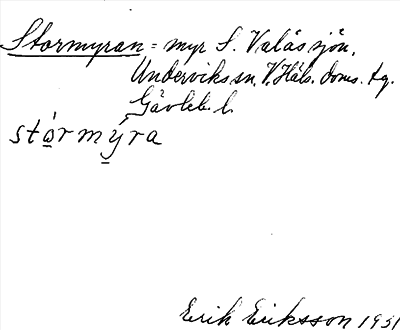 Stormyran = myr S. Valåssjön,
Underviks sn, V. Häls. doms. tg.
Gävleb. l.
stǻrmýra
Erik Eriksson 1931